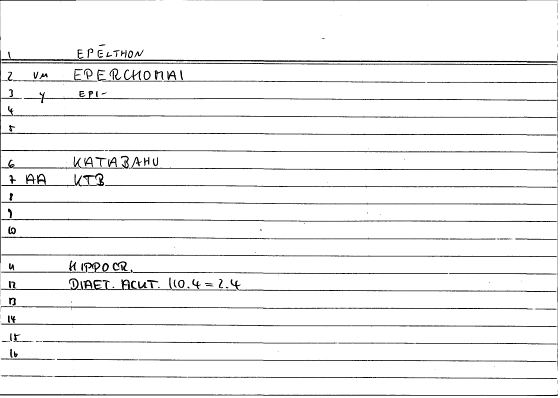 1 EPĒLTHON
2 VM EPERCHOMAI
3 y EPI-
4
5
6 KATABAHU
7 AA KTB
8
9
10
11 HIPPOCR.
12 DIAET. ACUT. 110.4 = 2.4
13
14
15
16